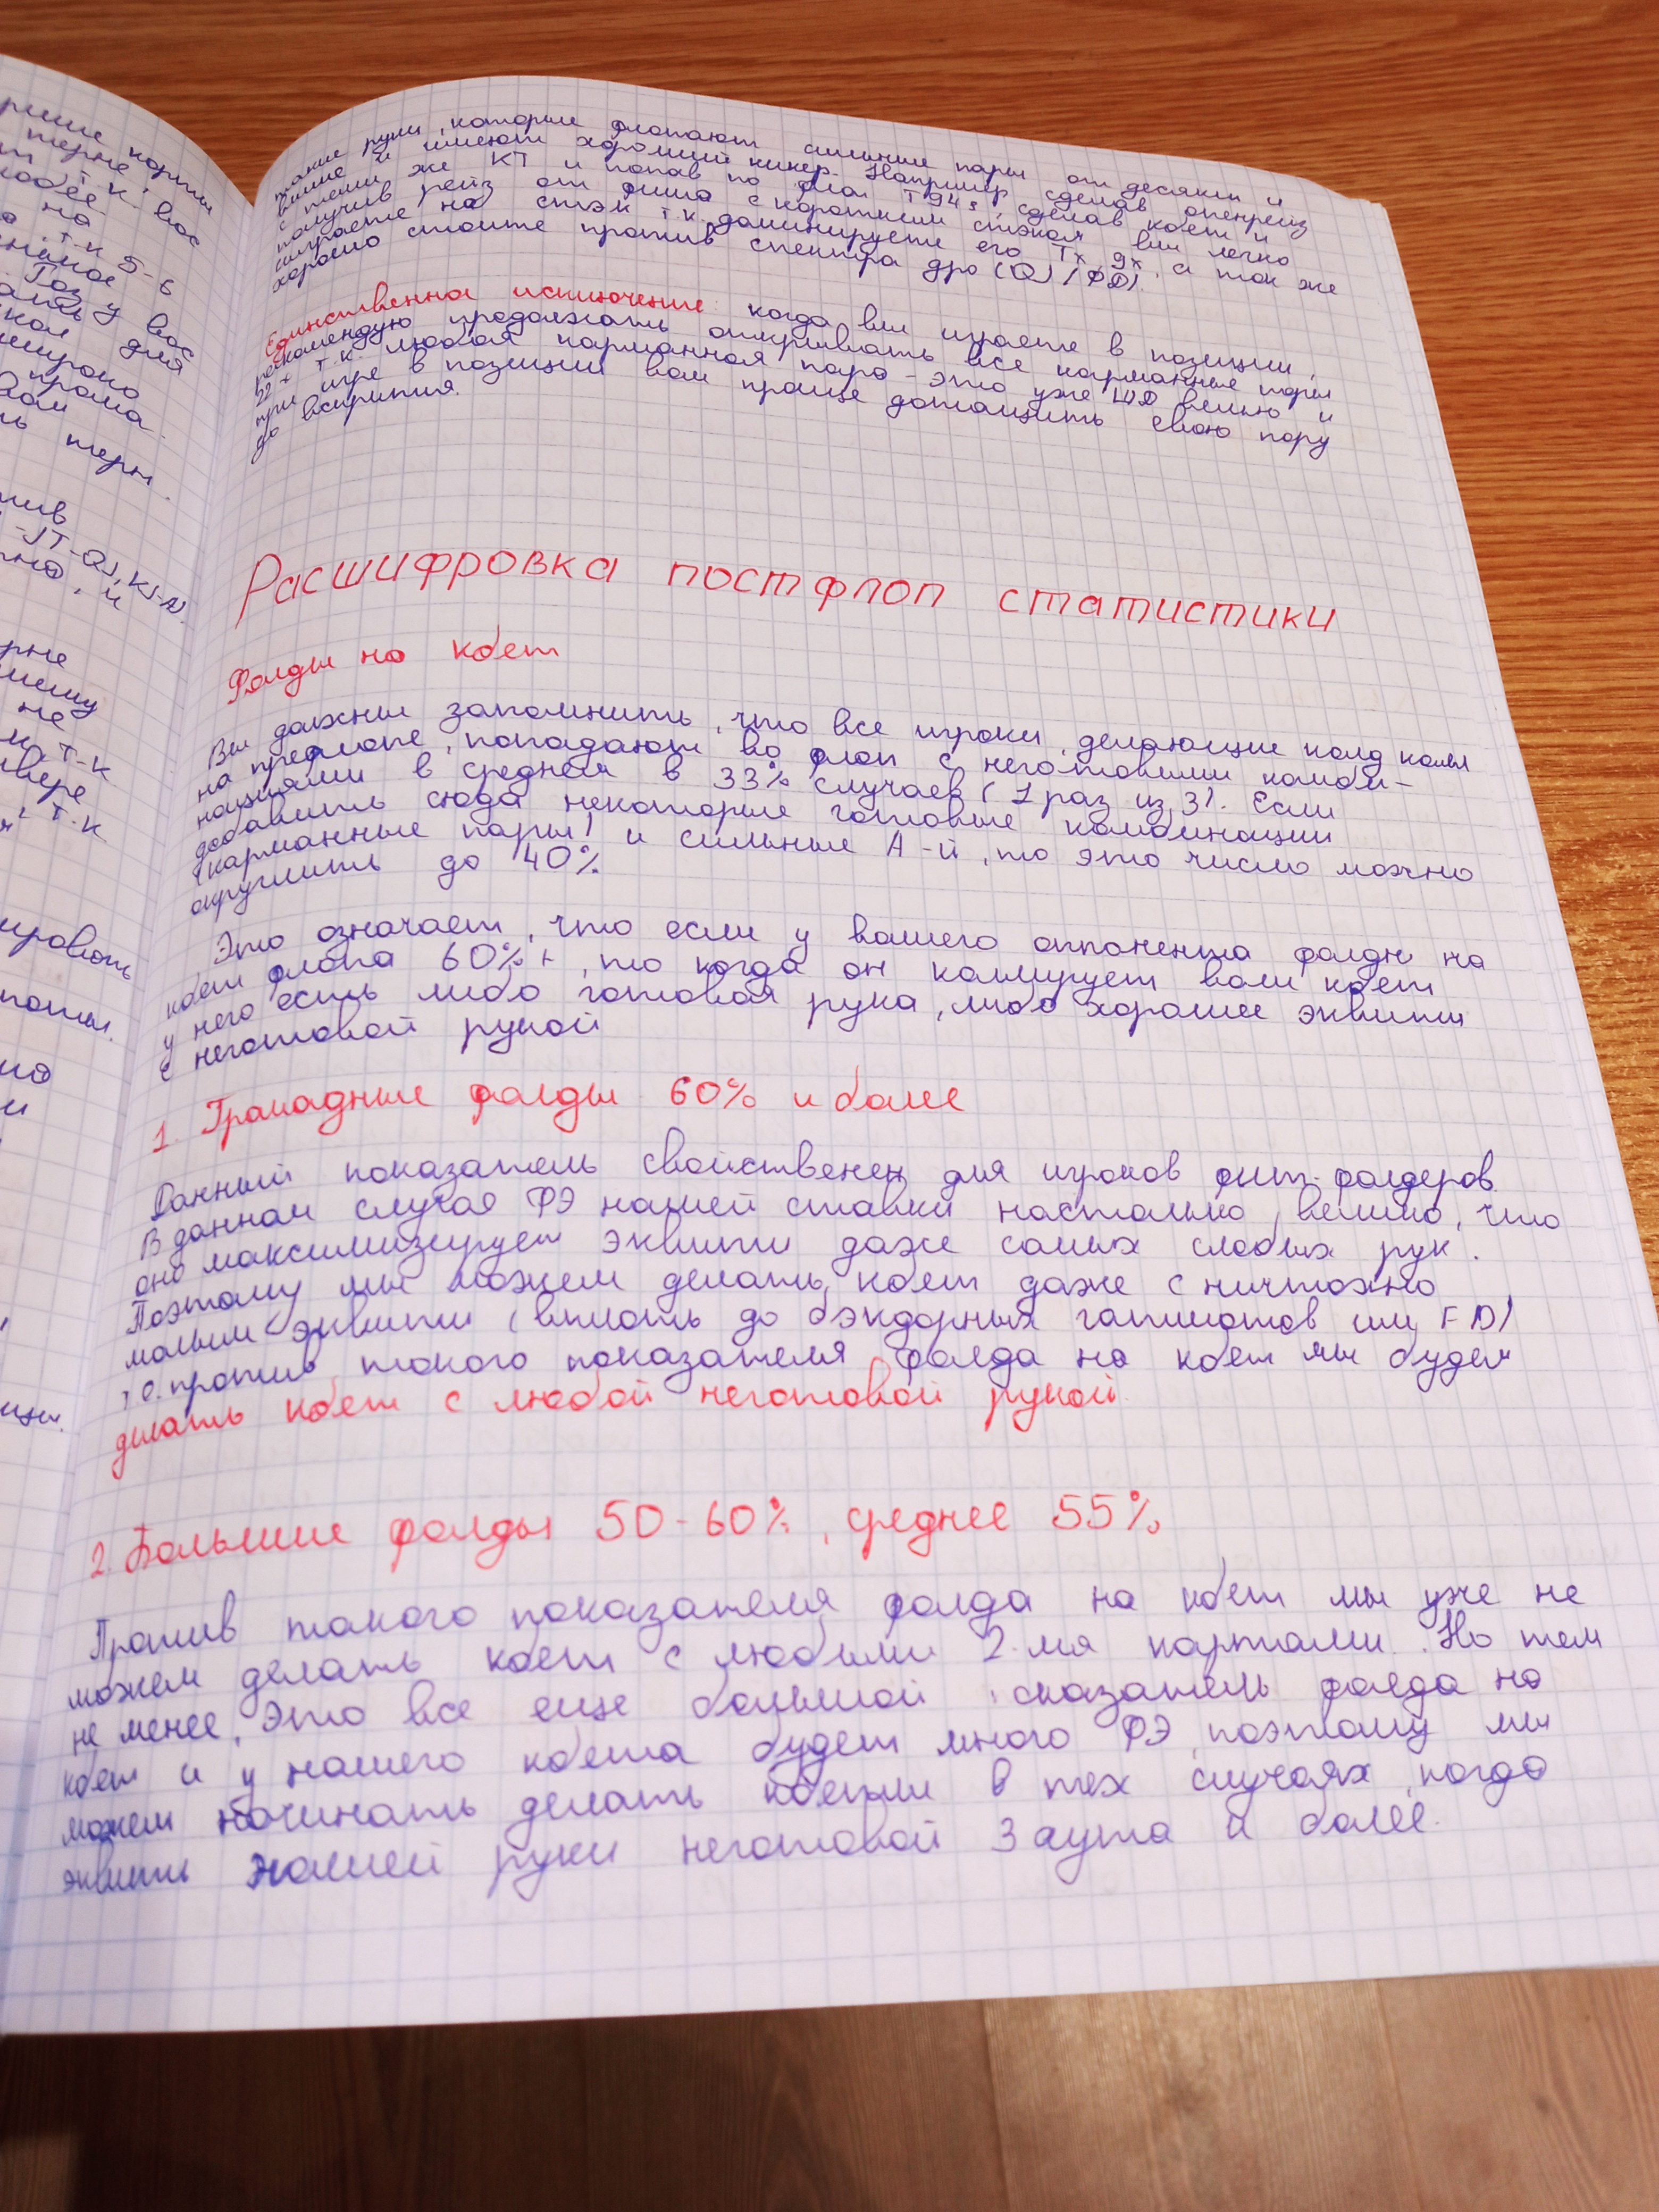 такие руки, которые флопают сильные пары от десятки и
выше и имеют хороший кикер. Например сделав опенрейз
с теми же KT и попав по флоп T94s, сделав кбет и
получив рейз от фиша с коротким стэком вы легко
сыграете на стэк т.к. доминируете его Tx, 9x, а так же
хорошо стоите против спектра дро (QJ / ФД).
Единственное исключение: когда вы играете в позиции,
рекомендую продолжать открывать все карманные пары
22+ т.к. любая карманная пара - это уже ШД велью и
при игре в позиции вам проще дотащить свою пару
до вскрытия.
Расшифровка постфлоп статистики
Фолды на кбет
Вы должны запомнить, что все игроки, делающие колд коллы
на префлопе, попадают во флоп с неготовыми комби-
нациями в среднем в 33% случаев (1 раз из 3). Если
добавить сюда некоторые готовые комбинации
(карманные пары) и сильные A-й, то это число можно
округлить до 40%
Это означает, что если у вашего оппонента фолды на
кбет флопа 60%+, то когда он коллирует ваш кбет
у него есть либо готовая рука, либо хорошее эквити
с неготовой рукой
1. Громадные фолды 60% и более
Данный показатель свойственен для игроков фит-фолдеров
В данном случае ФЭ нашей ставки настолько велико, что
оно максимизирует эквити даже самых слабых рук.
Поэтому мы можем делать кбет даже с ничтожно
малым эквити (вплоть до бэкдорных гатшотов или FD)
т.о. против такого показателя фолда на кбет мы будем
делать кбет с любой неготовой рукой
2. Большие фолды 50-60%, среднее 55%
Против такого показателя фолда на кбет мы уже не
можем делать кбет с любыми 2-мя картами. Но тем
не менее, это все еще большой показатель фолда на
кбет и у нашего кбета будет много ФЭ, поэтому мы
можем начинать делать кбеты в тех случаях, когда
эквити нашей руки неготовой 3 аута и более.